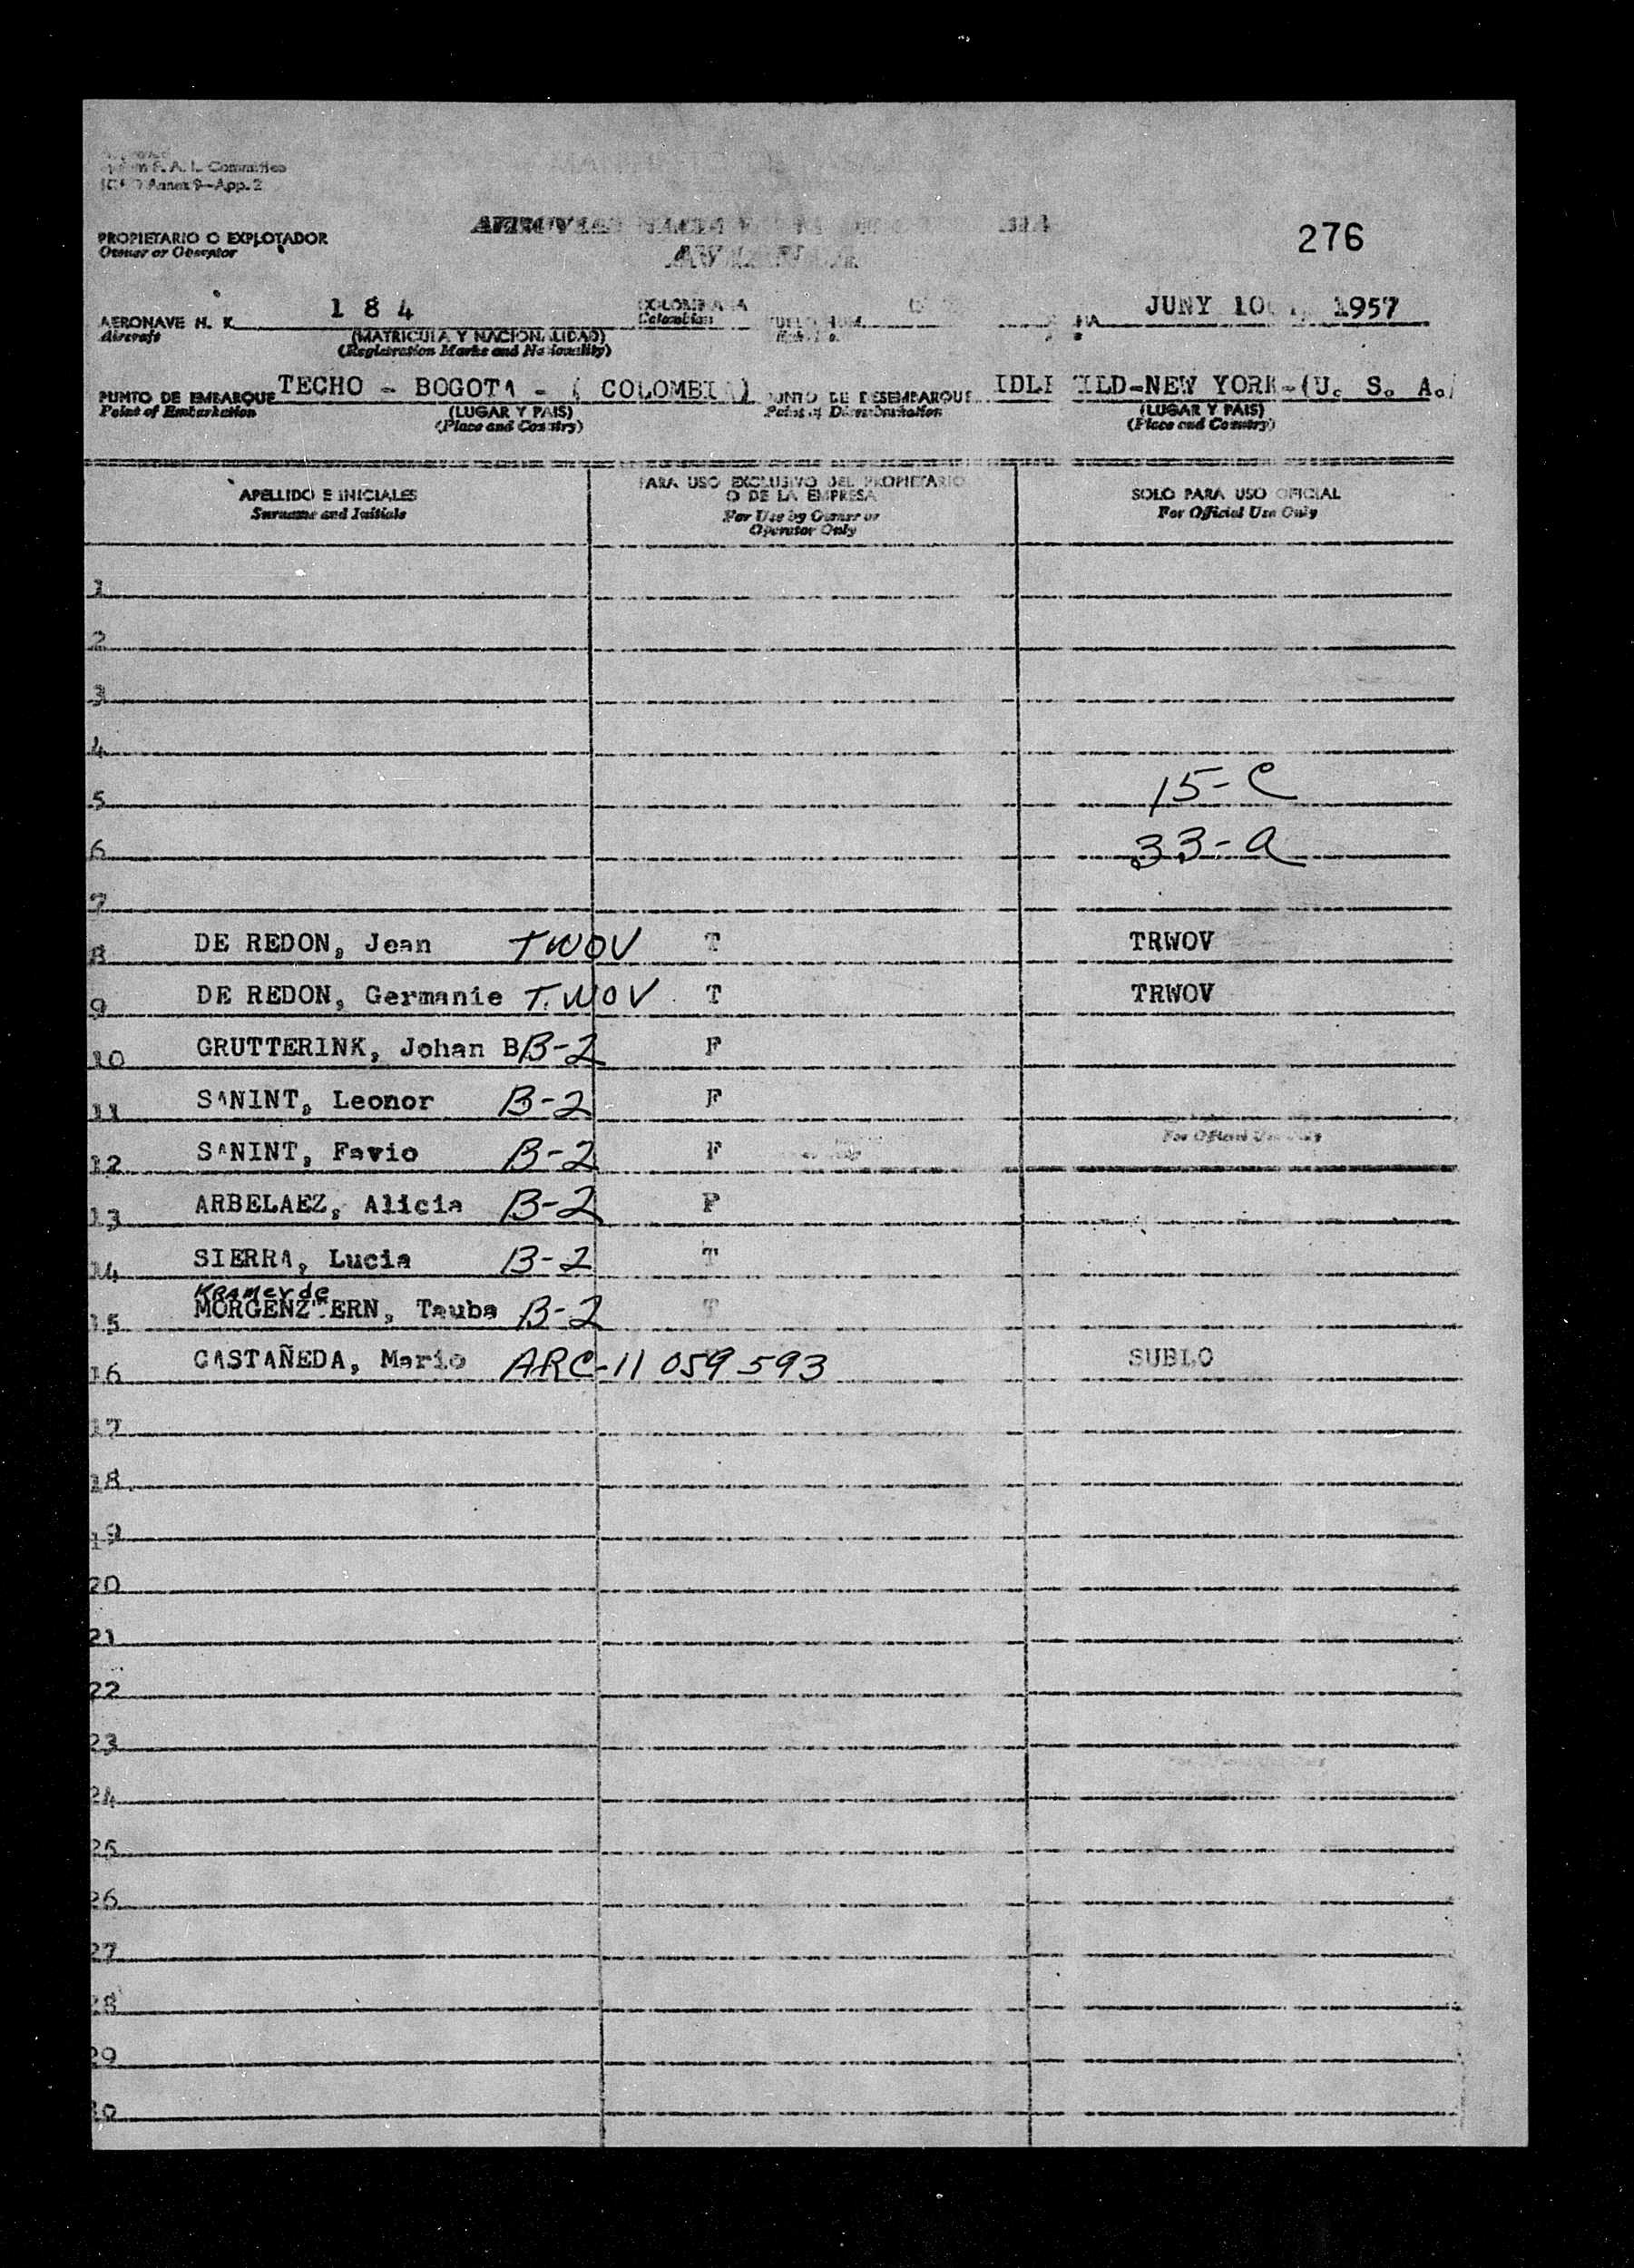 F. A. L. Committee
Annex 9—App. 2
276
PROPIETARIO O EXPLOTADOR
Owner or Operator
AERONAVE H. K. 1 8 4 COLOMBIANA JUNY 10 1957
Aircraft (MATRICULA Y NACIONALIDAD) Colombian
(Registration Marks and Nationality)
PUNTO DE EMBARQUE TECHO - BOGOTA - ( COLOMBIA) PUNTO DE DESEMBARQUE IDLEWILD-NEW YORK-(U. S. A.)
Point of Embarkation (LUGAR Y PAIS) Point of Disembarkation (LUGAR Y PAIS)
(Place and Country) (Place and Country)
APELLIDO E INICIALES PARA USO EXCLUSIVO DEL PROPIETARIO O DE LA EMPRESA SOLO PARA USO OFICIAL
Surname and Initials For Use by Owner or Operator Only For Official Use Only
1
2
3
4
5 15-C
6 33-a
7
8 DE REDON, Jean TWOV T TRWOV
9 DE REDON, Germanie T.WOV T TRWOV
10 GRUTTERINK, Johan B B-2 F
11 SANINT, Leonor B-2 F
For Official Use Only
12 SANINT, Favio B-2 F
13 ARBELAEZ, Alicia B-2 F
14 SIERRA, Lucia B-2 T
Kramer de
15 MORGENZTERN, Tauba B-2 T
16 CASTAÑEDA, Mario ARC-11 059 593 SUBLO
17
18
19
20
21
22
23
24
25
26
27
28
29
30